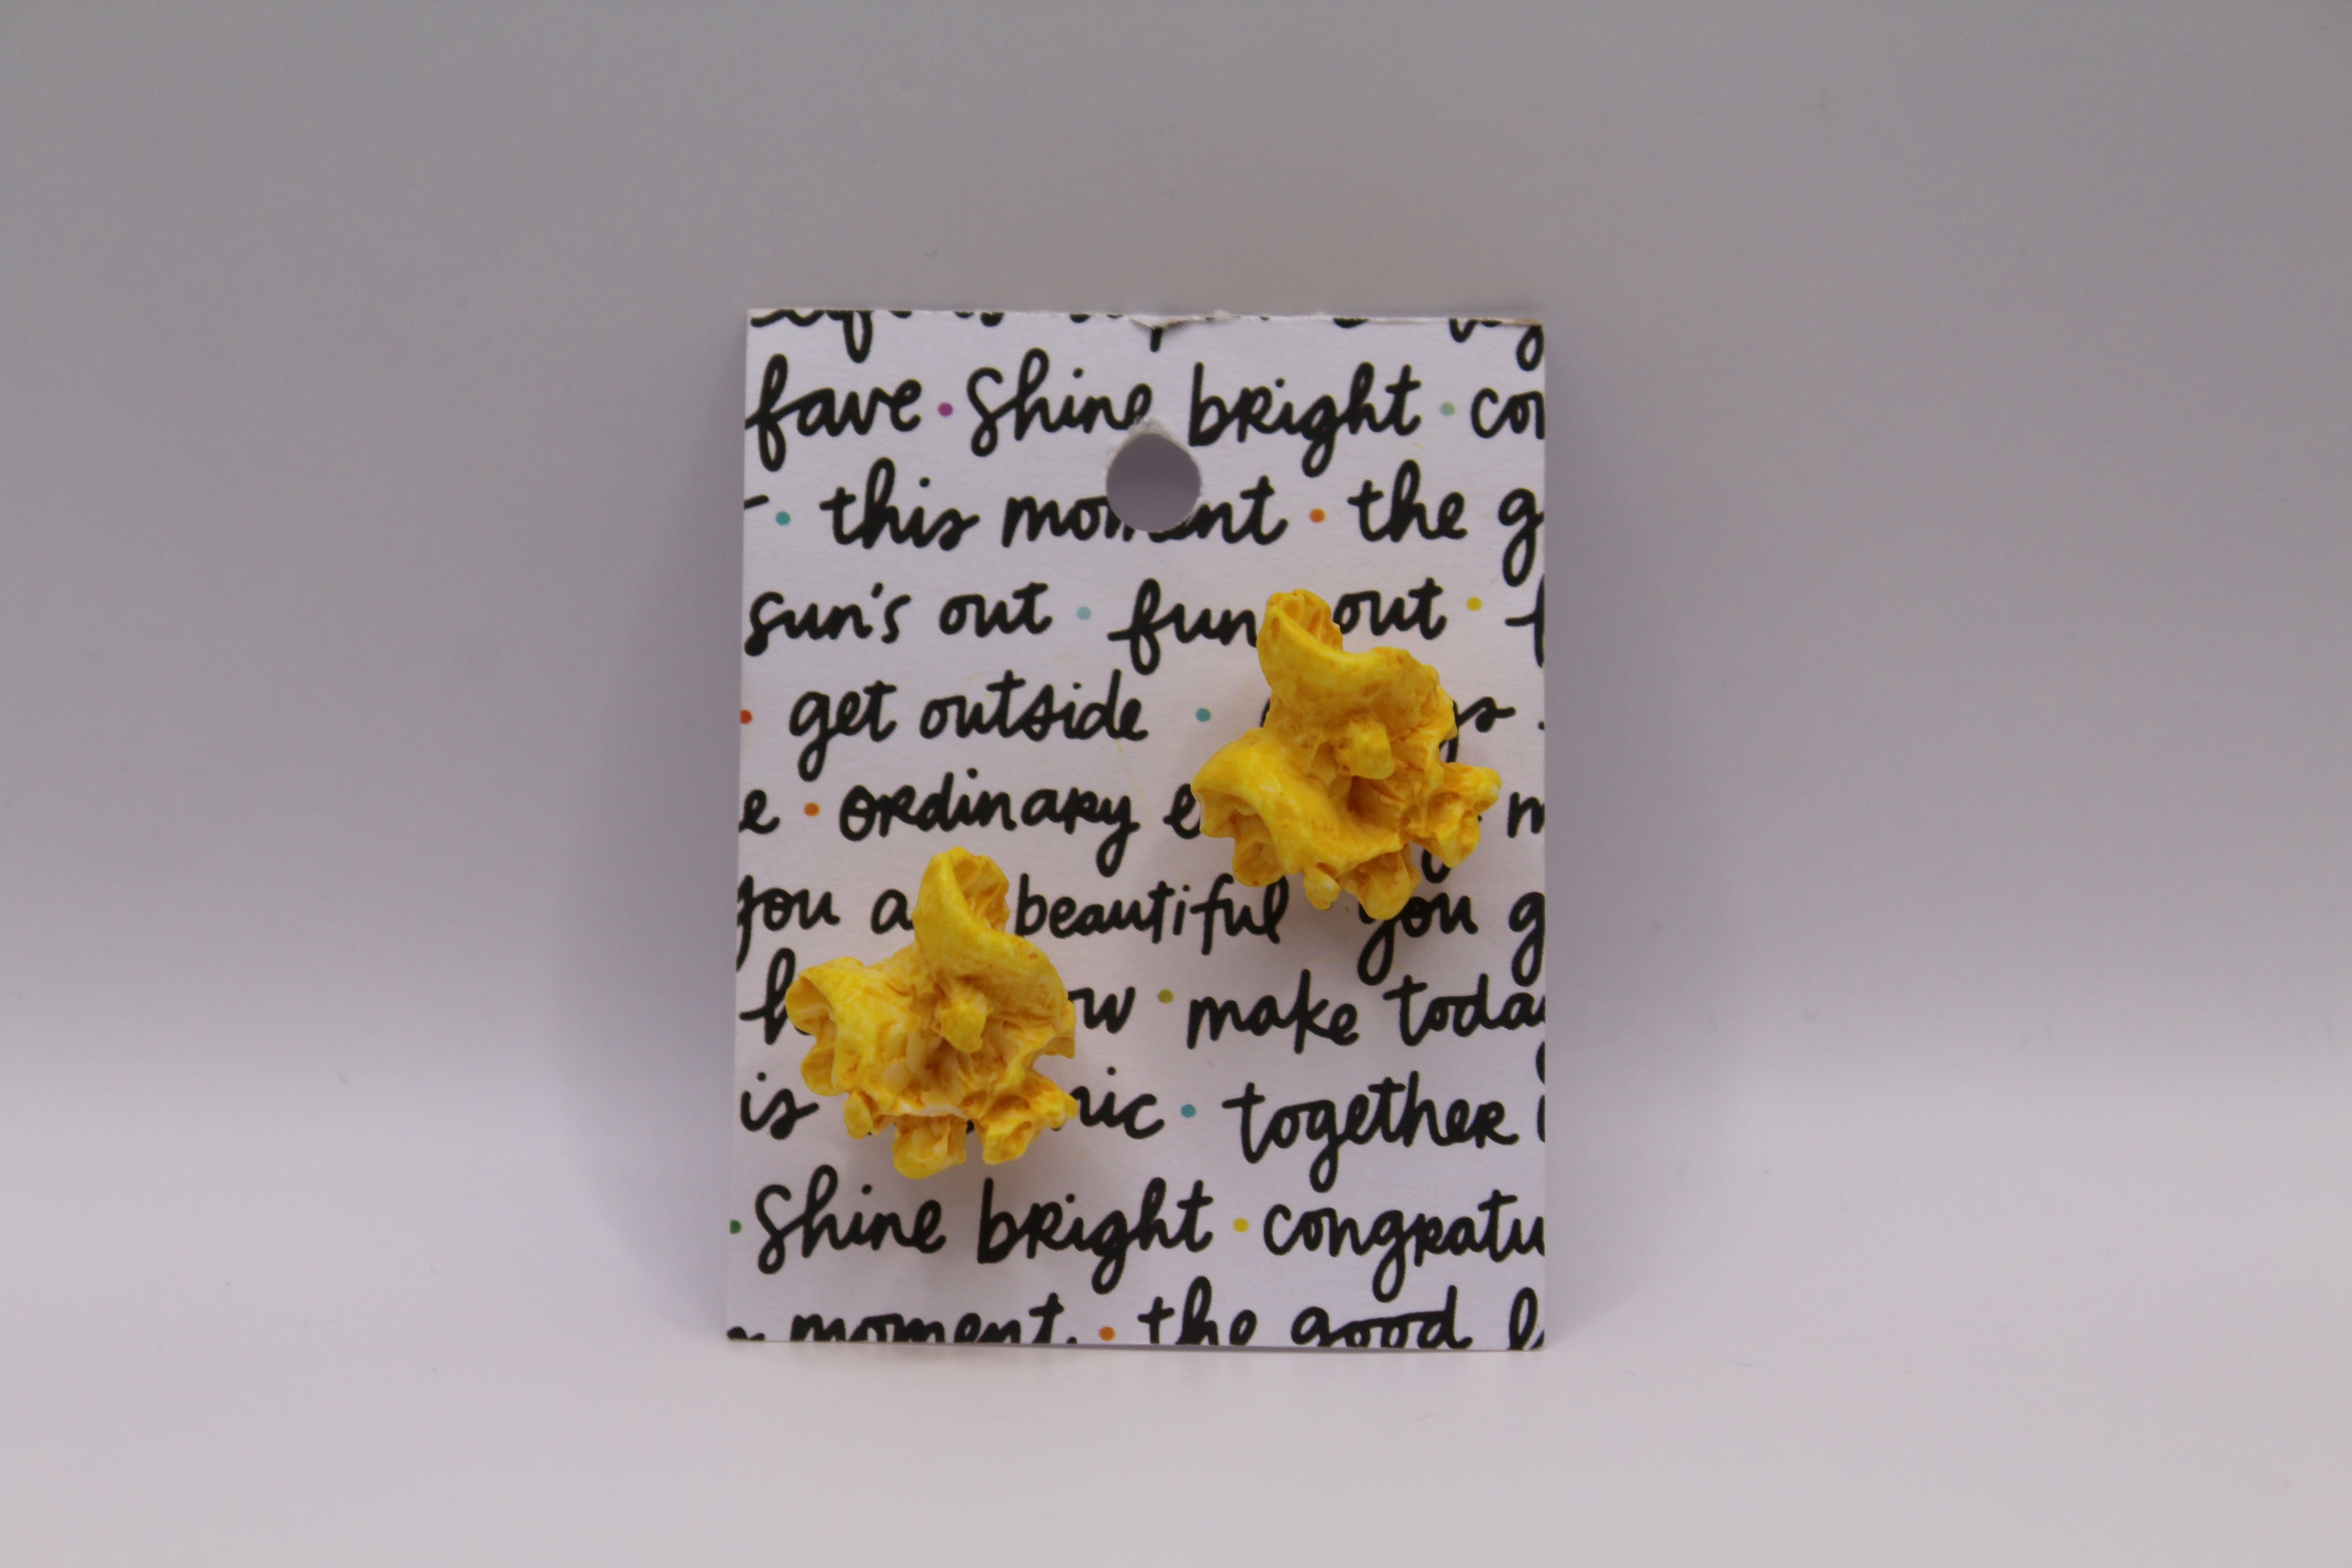 fave • Shine bright •
• this moment • the
sun's out • fun out •
• get outside •
• ordinary
you beautiful you
• make
is • together
• Shine bright • congratu
moment • the good